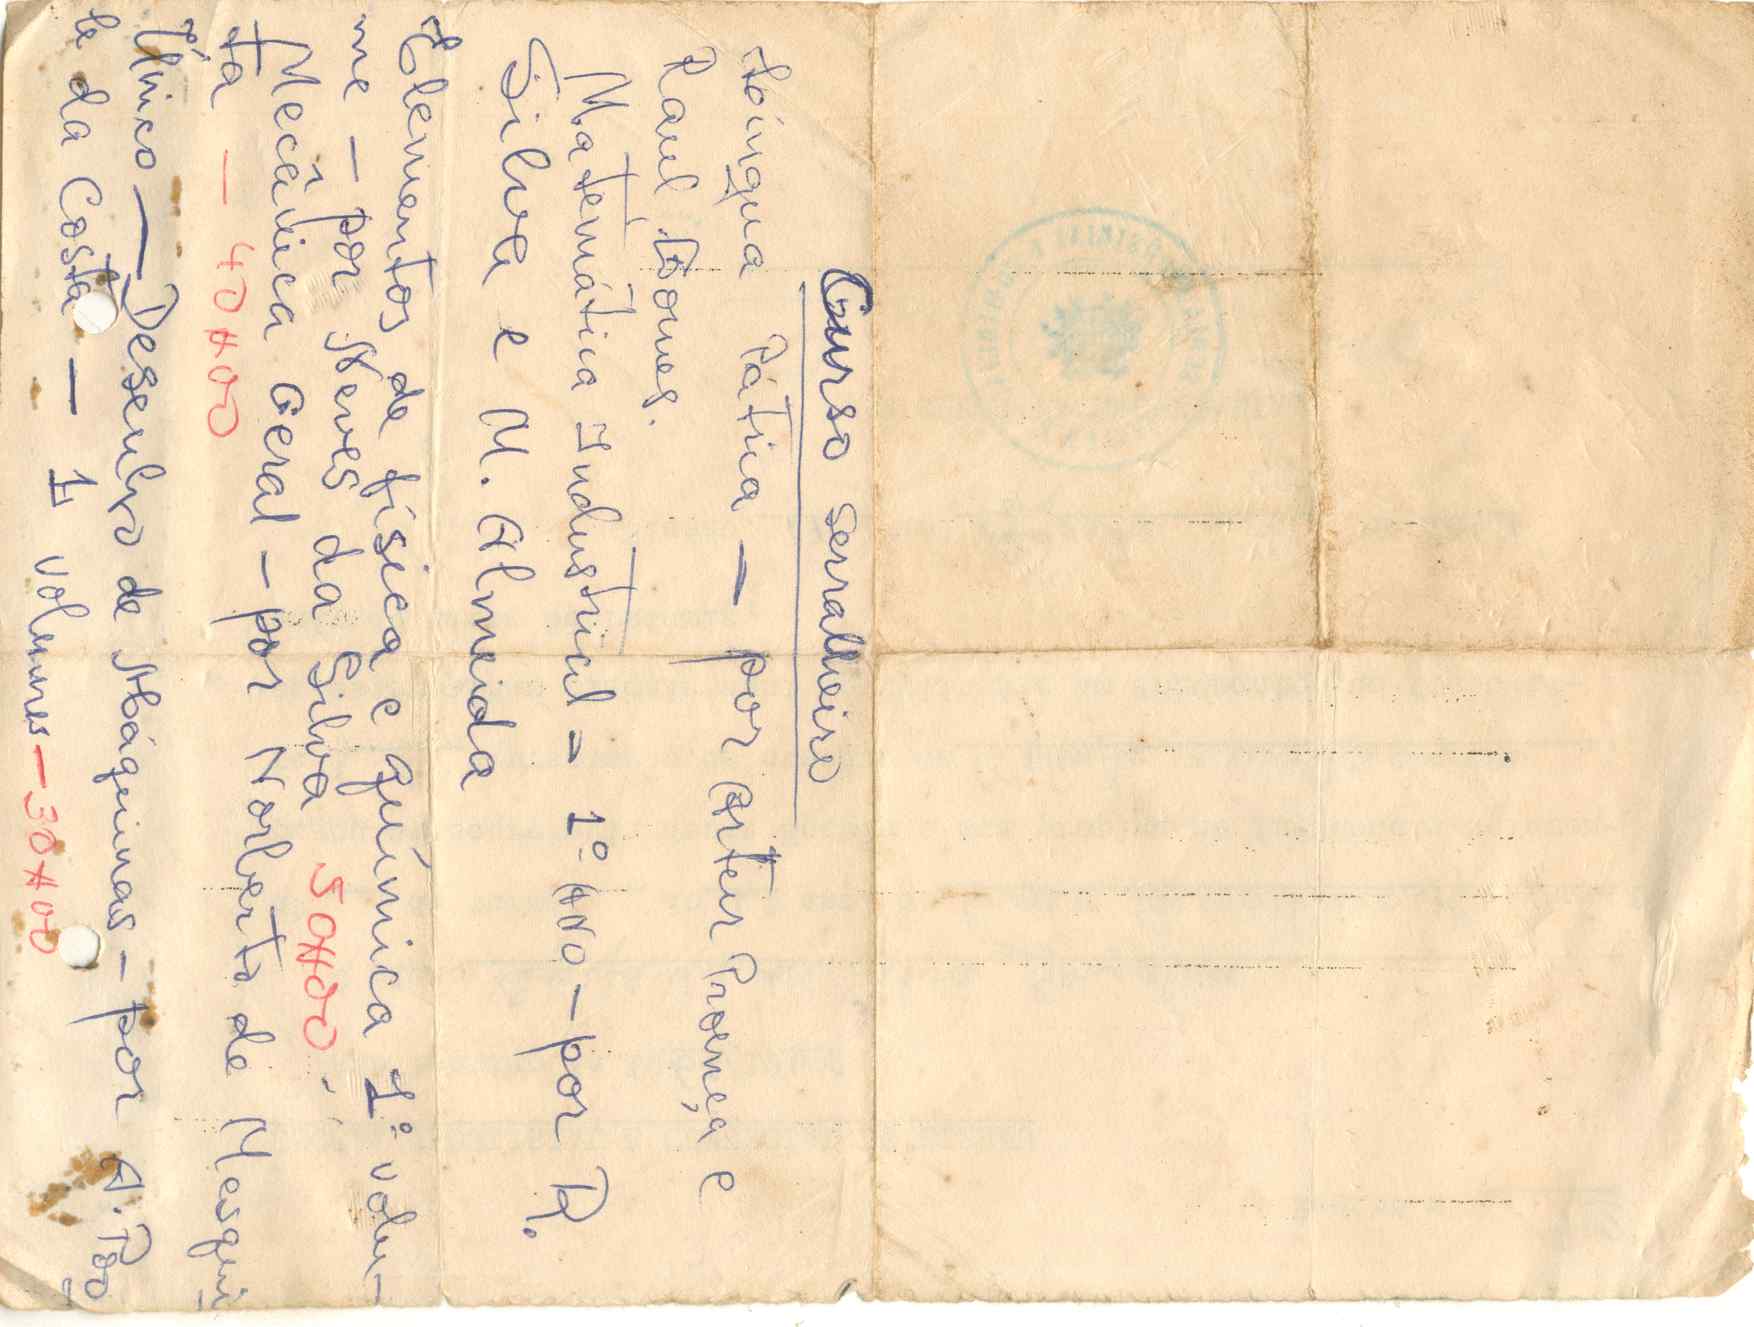 Curso Serralheiro
Língua Pátria — por Artur Proença e
Raul Gomes.
Matemática Industrial — 1º ANO — por R.
Silva e M. Almeida
Elementos de física e química 1º volu-
me — por Neves da Silva 50$00
Mecânica Geral — por Norberto de Mesqui
ta — 40$00
Único — Desenho de Máquinas — por A.
le da Costa — 1 volumes — 30$00